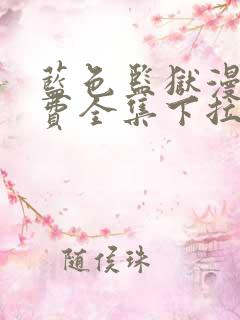 藍色監獄漫
費全集下拉
随侯珠